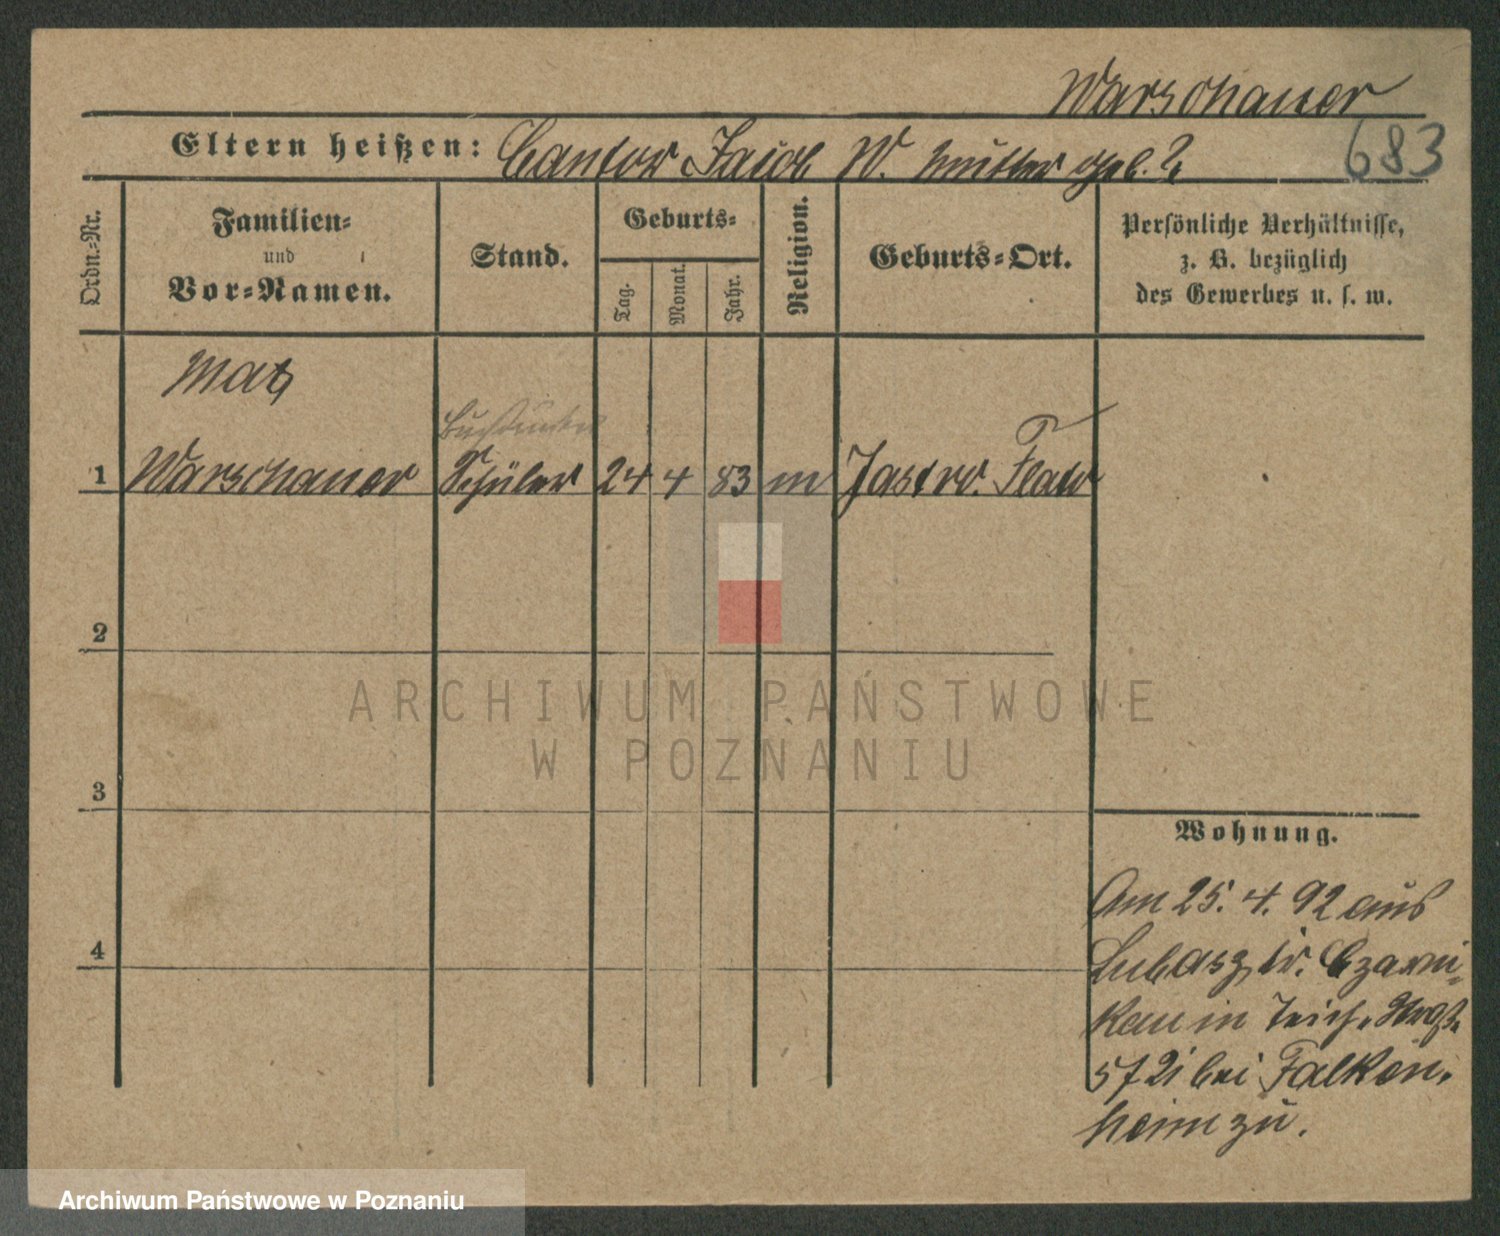 Warschauer
683
Eltern heißen: Cantor Jacob W. Mutter geb. ?
Ordn.-Nr.
Familien-
und
Vor-Namen.
Stand.
Geburts-
Tag.
Monat.
Jahr.
Religion.
Geburts-Ort.
Persönliche Verhältnisse,
z. B. bezüglich
des Gewerbes u. s. w.
Max
1 Warschauer Schüler 24 4 83 m Jastrow. Flatow
2
ARCHIWUM PAŃSTWOWE
W POZNANIU
3
Wohnung.
4
Am 25. 4. 92 aus
Lubasz, Kr. Czarni-
kau in
bei Falken-
heim zu.
Archiwum Państwowe w Poznaniu